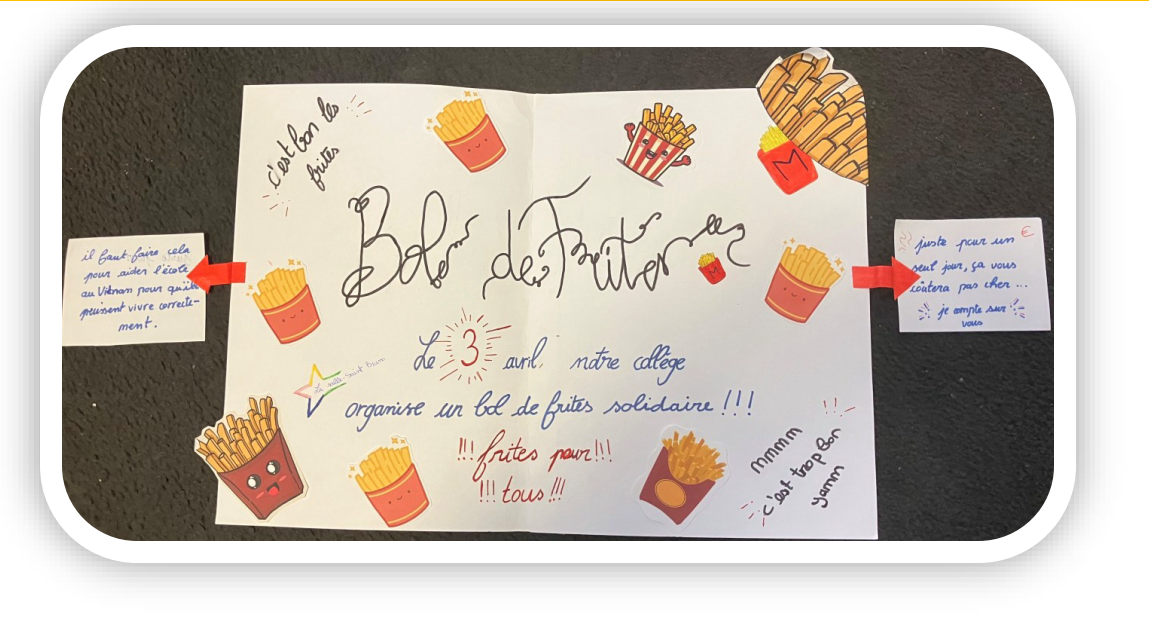 c'est bon les
frites
Bol de Frites
M
M
il faut faire cela
pour aider l'école
au Vietnam pour qu'ils
puissent vivre correcte-
ment.
juste pour un €
seul jour, ça vous
coûtera pas cher ...
je compte sur
vous
Le 3 avril notre collège
organise un bol de frites solidaire !!!
!!! frites pour !!!
!!! tous !!!
mmmm
c'est trop bon
yamm
!!